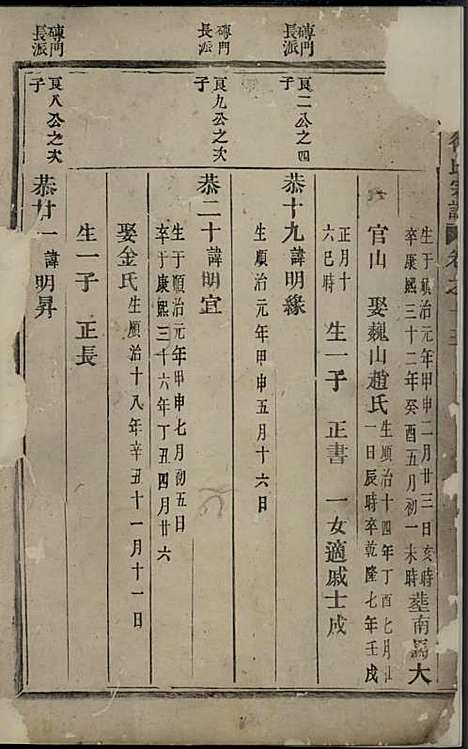 宗譜 卷之十三
生于順治元年甲申二月廿三日亥時
卒康熙三十二年癸酉五月初一未時
塟南 大
官山 娶魏山趙氏
生順治十四年丁酉七月
一日辰時卒乾隆七年壬戌
正月十
六巳時
生一子 正書 一女適戚士成
磚門
長派
良二公之四
子
恭十九諱明緣
生順治元年甲申五月十六日
磚門
長派
良九公之次
子
恭二十諱明宜
生于順治元年甲申七月初五日
卒于康熙三十六年丁丑四月廿六
娶金氏
生順治十八年辛丑十一月十一日
生一子 正長
磚門
長派
良八公之次
子
恭廿一諱明昇